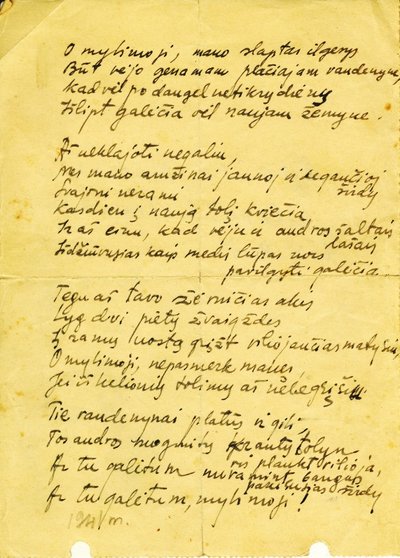 O mylimoji, mano slaptas ilgesys
Būt vėjo genamam plačiajam vandenyne,
Kad vėl po dangel netikrų dienų
Išlipt galėčia vėl naujam žemyne.
Aš neklajoti negaliu,
Nes mano amžinai jaunoj ir degančioj
širdy
Svajonė nerami
Kasdien į naują tolį kviečia
Ir aš einu, kad vėju ir audros šaltais
lašais
Išdžiūvusias kaip medis lūpas nors
pavilgyti galėčia.
Tegu aš tavo žėrinčias akis
Lyg dvi pietų žvaigždes
Į ramų uostą grįžt viliojančias matysiu,
O mylimoji, nepasmerk manęs
Jei iš kelionių tolimų aš nebegrįšiu.
Tie vandenynai platūs ir gilūs,
Tos audros krantų tolyn
vis plaukt vilioja,
Ar tu galėtum nuramint bangas
pakilusias širdy
Ar tu galėtum, mylimoji!
194 m.